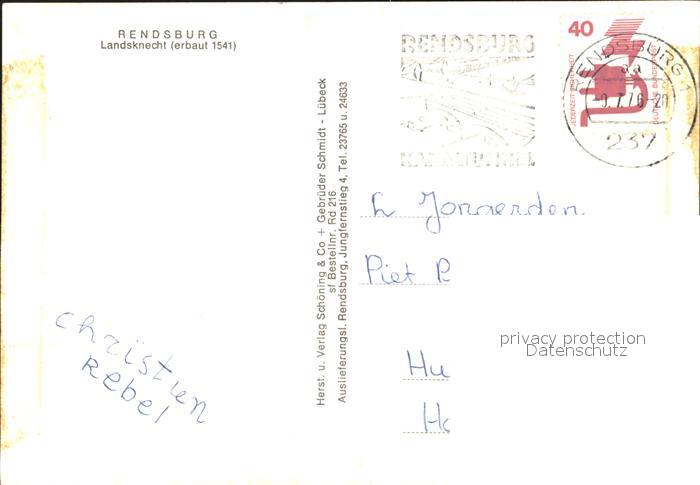 RENDSBURG
Landsknecht (erbaut 1541)
Herst. u. Verlag Schöning & Co + Gebrüder Schmidt - Lübeck
sf Bestellnr. Rd 216
Auslieferungsl. Rendsburg, Jungfernstieg 4, Tel. 23765 u. 24633
RENDSBURG
40
JEDERZEIT SICHERHEIT
DEUTSCHE BUNDESPOST
RENDSBURG 1
aa
-9.7.76-20
237
Piet
Hu
privacy protection
Datenschutz
christien
Rebel